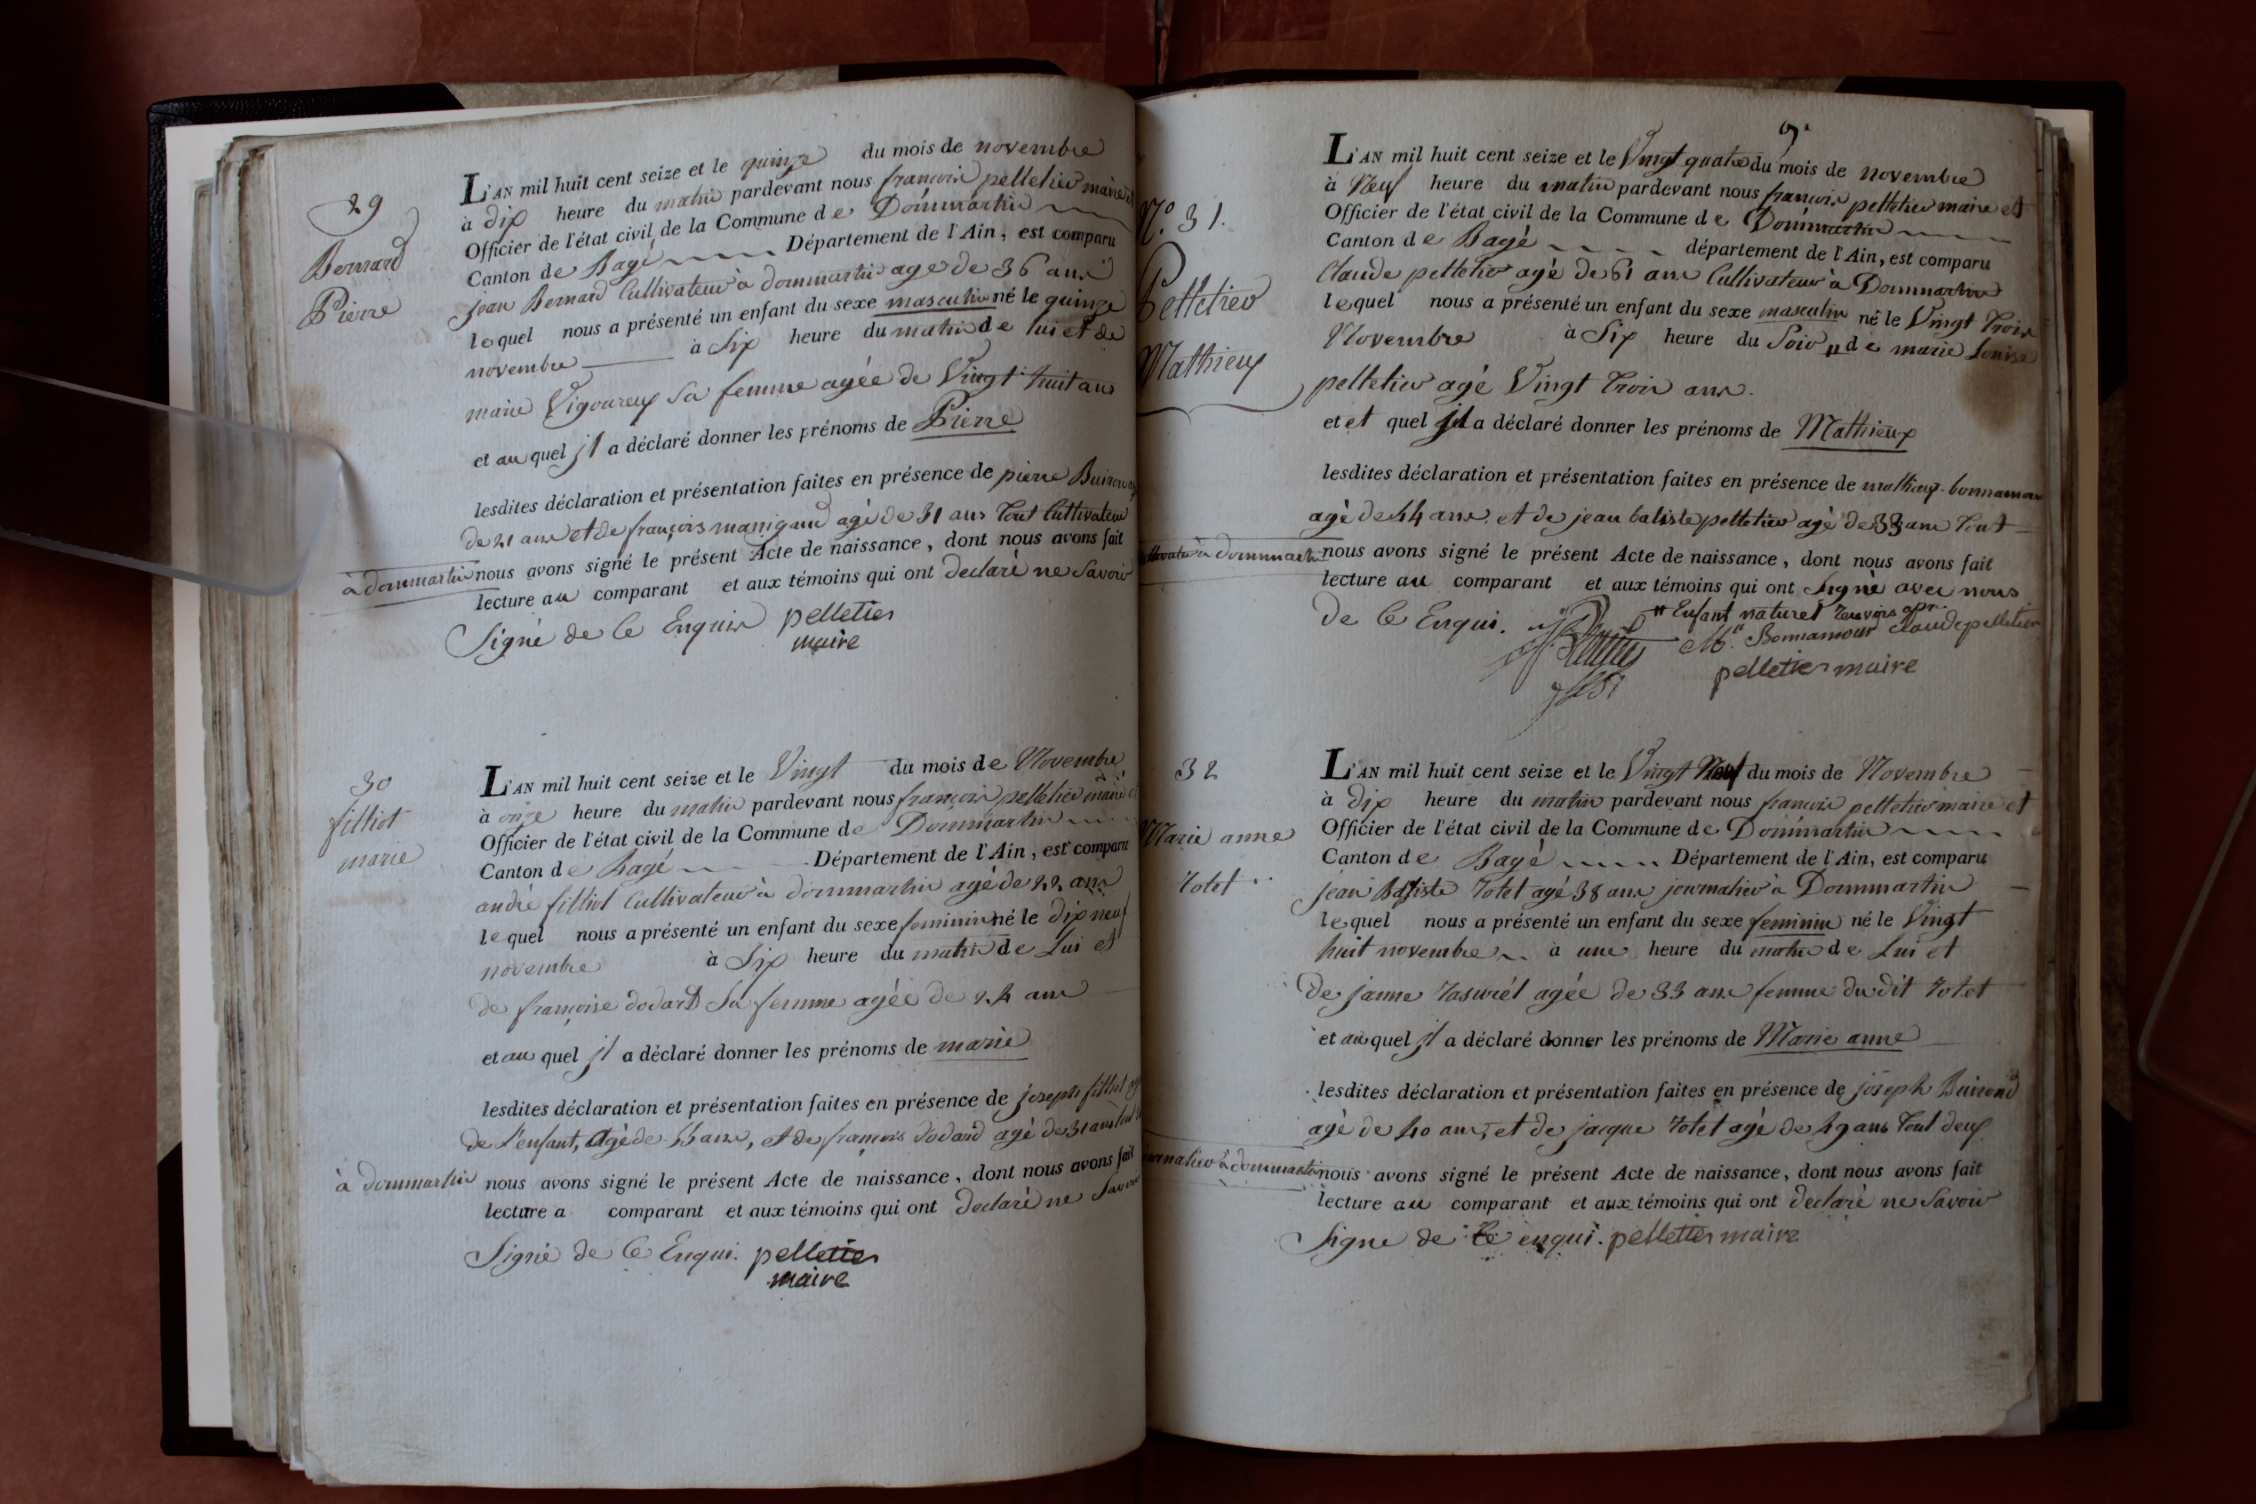 29
Bernard
Pierre
L'AN mil huit cent seize et le quinze du mois de novembre
à dix heure du matin pardevant nous françois pelletier maire et
Officier de l'état civil de la Commune de Dommartin
Canton de Bagé Département de l'Ain, est comparu
jean Bernard Cultivateur à dommartin age de 36 ans
lequel nous a présenté un enfant du sexe masculin né le quinze
novembre à Six heure du matin de lui et de
marie Vigoureux Sa femme agée de Vingt huit ans
et au quel jl a déclaré donner les prénoms de Pierre
lesdites déclaration et présentation faites en présence de pierre Buiron
de 21 ans et de françois manigand agé de 31 ans tout Cultivateur
à dommartin nous avons signé le présent Acte de naissance, dont nous avons fait
lecture au comparant et aux témoins qui ont declaré ne Savoir
Signé de Ce Enquis pelletier
maire
30
filliot
marie
L'AN mil huit cent seize et le Vingt du mois de Novembre
à onze heure du matin pardevant nous françois pelletier maire et
Officier de l'état civil de la Commune de Dommartin
Canton de Bagé Département de l'Ain, est comparu
andré filliot Cultivateur à dommartin agé de 22 ans
lequel nous a présenté un enfant du sexe feminin né le dix neuf
novembre à Six heure du matin de Lui et
de françoise dodard Sa femme agée de 24 ans
et au quel jl a déclaré donner les prénoms de marie
lesdites déclaration et présentation faites en présence de joseph filliot
de l'enfant, agé de ans, et de françois Dodard agé de 31 ans
à dommartin nous avons signé le présent Acte de naissance, dont nous avons fait
lecture a comparant et aux témoins qui ont declaré ne Savoir
Signé de Ce Enqui. pelletier
maire
9.
N.º 31.
Pelletier
Mathieux
L'AN mil huit cent seize et le Vingt quatre du mois de novembre
à Neuf heure du matin pardevant nous françois pelletier maire et
Officier de l'état civil de la Commune de Dommartin
Canton de Bagé département de l'Ain, est comparu
Claude pelletier agé de 61 ans Cultivateur à Dommartin
lequel nous a présenté un enfant du sexe masculin né le Vingt trois
Novembre à Six heure du Soir de marie Louise
pelletier agé Vingt trois ans.
et et quel jl a déclaré donner les prénoms de Mathieux
lesdites déclaration et présentation faites en présence de mathieux bonnamour
agé de 44 ans, et de jean batiste pelletier agé de 33 ans tout
à dommartin nous avons signé le présent Acte de naissance, dont nous avons fait
lecture au comparant et aux témoins qui ont Signé avec nous
de Ce Enqui. Enfant naturel
M. Bonnamour claude pelletier
pelletier maire
32
Marie anne
totet
L'AN mil huit cent seize et le Vingt Neuf du mois de Novembre
à dix heure du matin pardevant nous françois pelletier maire et
Officier de l'état civil de la Commune de Dommartin
Canton de Bagé Département de l'Ain, est comparu
jean Batiste totet agé 38 ans journalier à Dommartin
lequel nous a présenté un enfant du sexe feminin né le Vingt
huit novembre à une heure du matin de Lui et
de janne agée de 33 ans femme du dit totet
et au quel jl a déclaré donner les prénoms de Marie anne
lesdites déclaration et présentation faites en présence de joseph Buirond
agé de 40 ans, et de jacque totet agé de 49 ans tout deux
journalier à dommartin nous avons signé le présent Acte de naissance, dont nous avons fait
lecture au comparant et aux témoins qui ont declaré ne Savoir
Signe de Ce enqui. pelletier maire